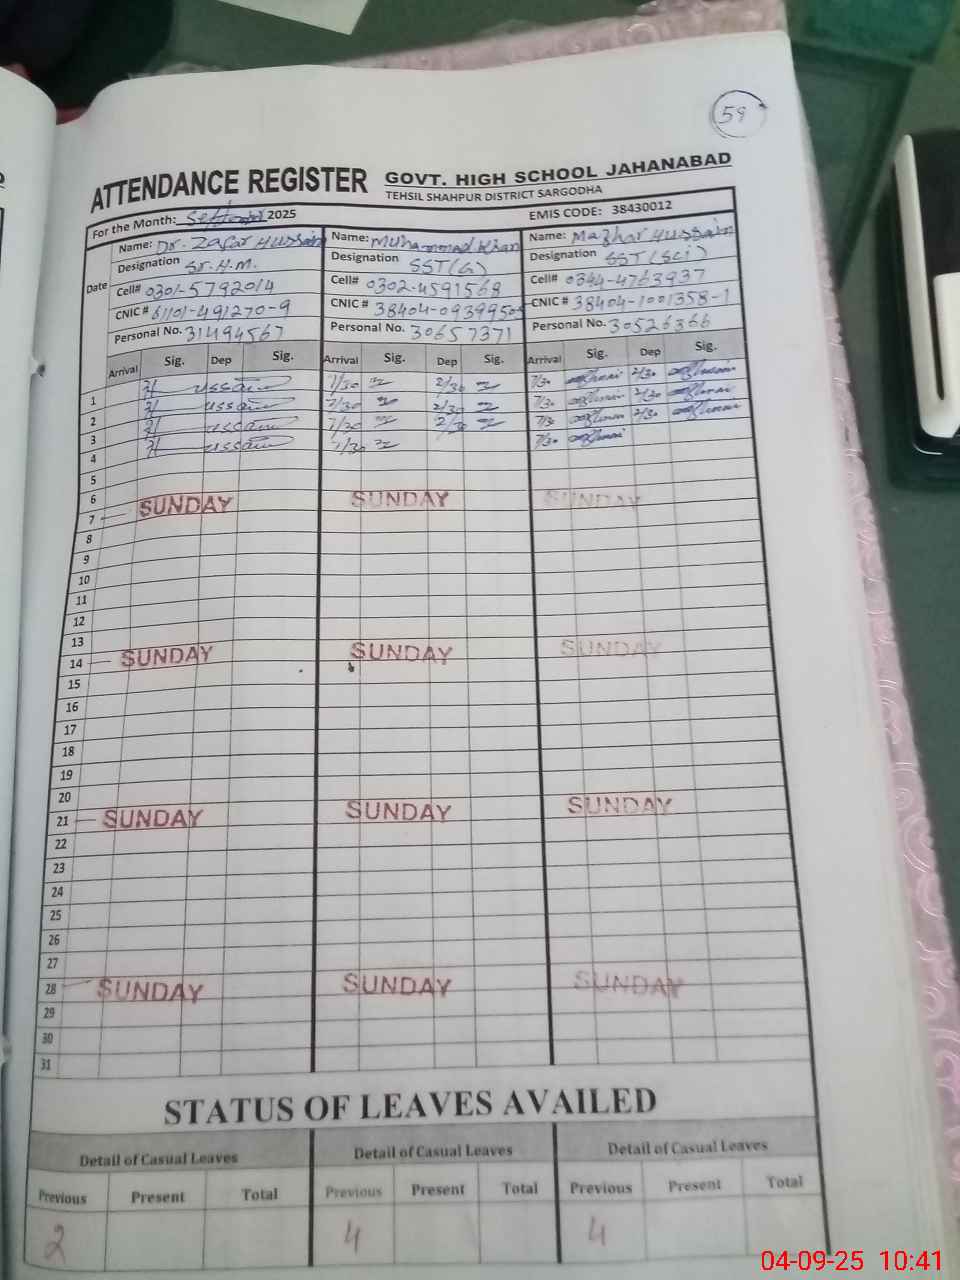 59
ATTENDANCE REGISTER GOVT. HIGH SCHOOL JAHANABAD
TEHSIL SHAHPUR DISTRICT SARGODHA
For the Month: 2025 EMIS CODE: 38430012
Name: Dr. Zafar Hussain Name: Muhammad Khan Name: Mazhar Hussain
Designation Sr. H.M. Designation SST(G) Designation SST(SCI)
Date Cell# 0301-5792014 Cell# 0302-4591568 Cell# 0344-4763937
CNIC # 61101-491270-9 CNIC # CNIC # 38404-1001358-1
Personal No. 31494567 Personal No. 30657371 Personal No. 30526366
Arrival Sig. Dep Sig. Arrival Sig. Dep Sig. Arrival Sig. Dep Sig.
1 7/30 2/30 7/30 2/30
2 7/30 2/30 7/30 2/30
3 7/30 2/30 7/30 2/30
4 7/30 7/30
5
6
7 SUNDAY SUNDAY SUNDAY
8
9
10
11
12
13
14 SUNDAY SUNDAY SUNDAY
15
16
17
18
19
20
21 SUNDAY SUNDAY SUNDAY
22
23
24
25
26
27
28 SUNDAY SUNDAY SUNDAY
29
30
31
STATUS OF LEAVES AVAILED
Detail of Casual Leaves Detail of Casual Leaves Detail of Casual Leaves
Previous Present Total Previous Present Total Previous Present Total
2 4 4
04-09-25 10:41